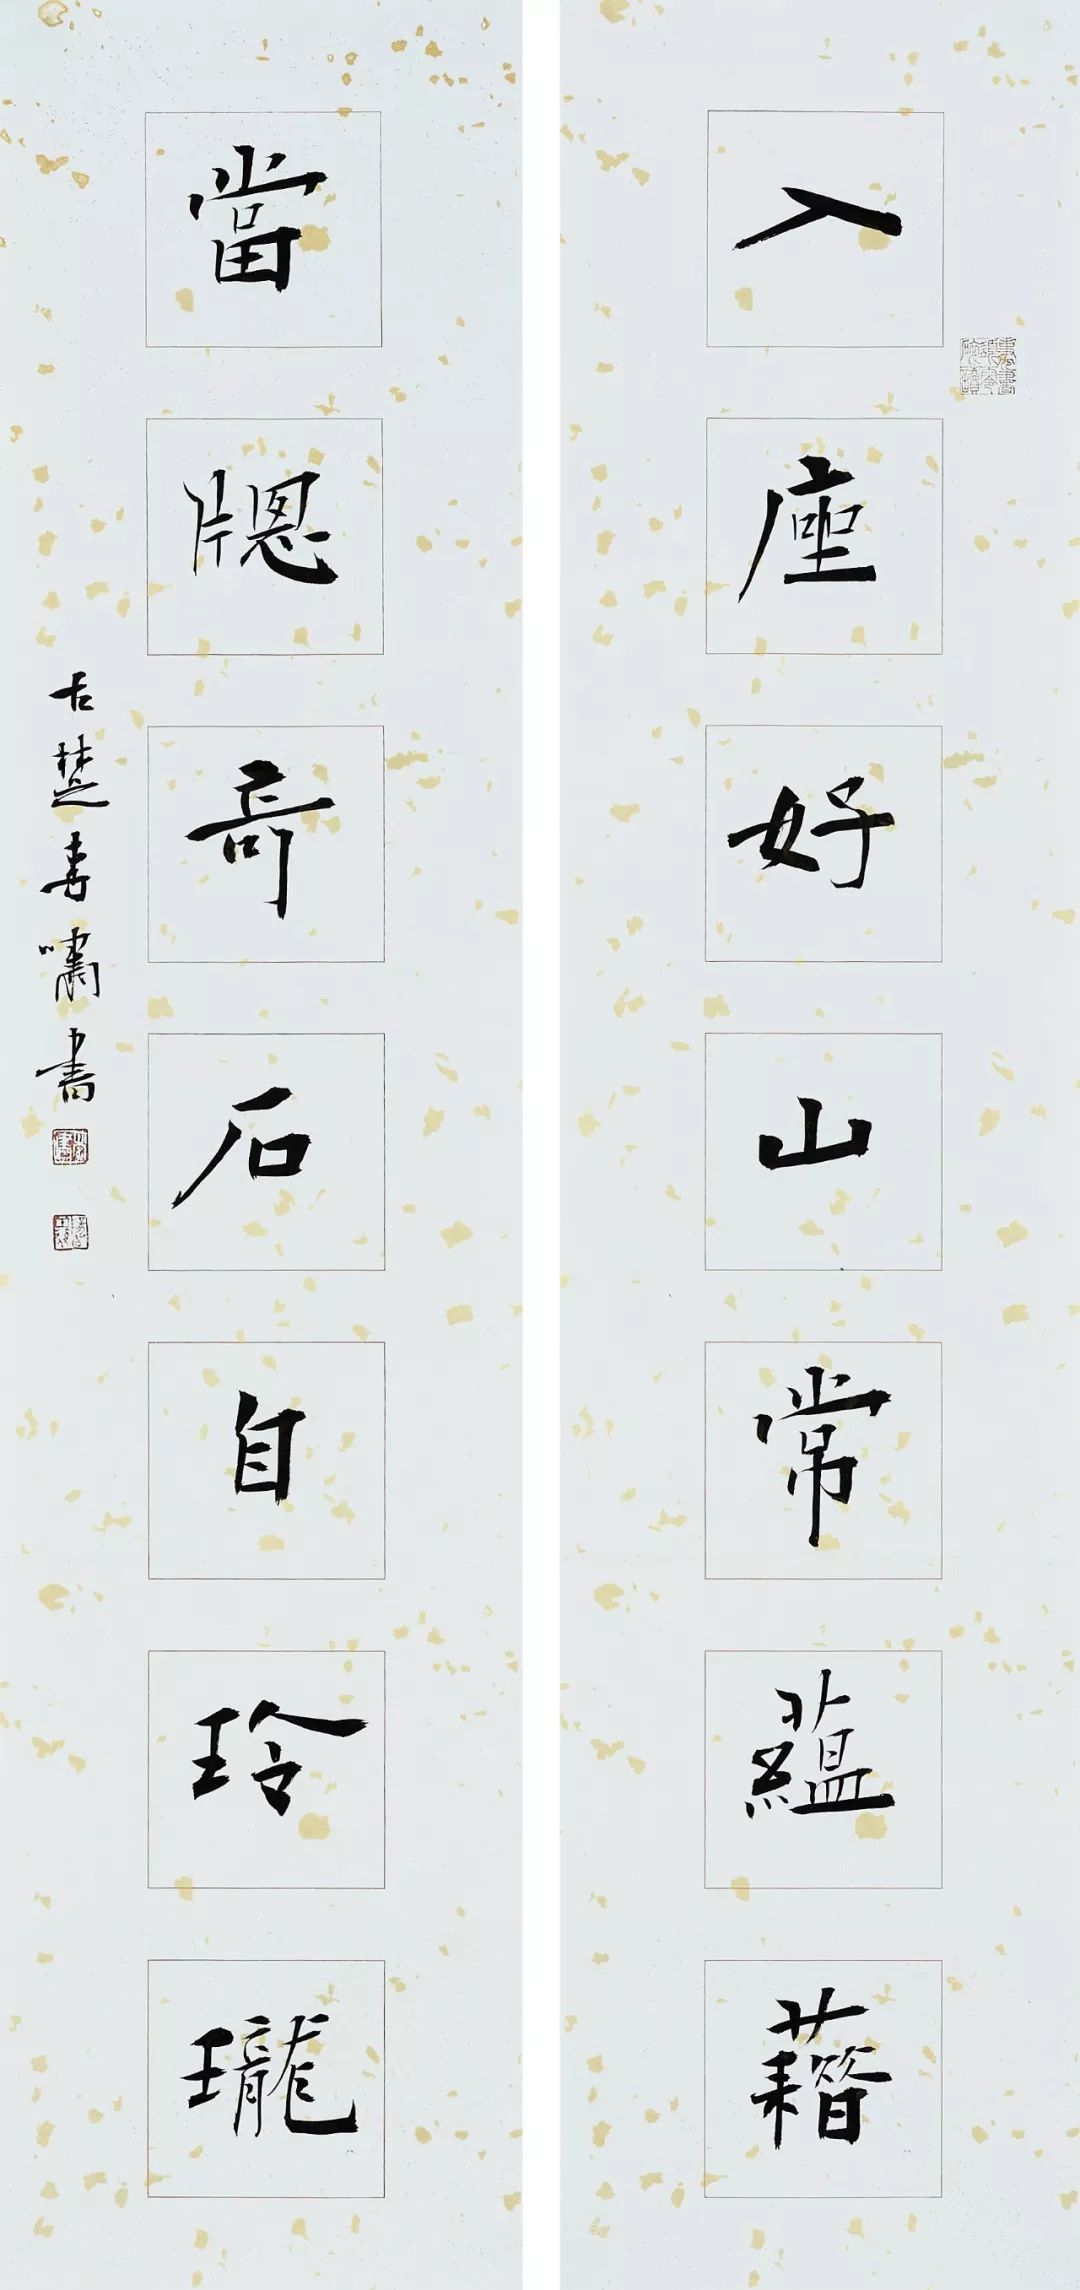 入座好山常蘊藉
當牕竒石自玲瓏
古楚嘯書